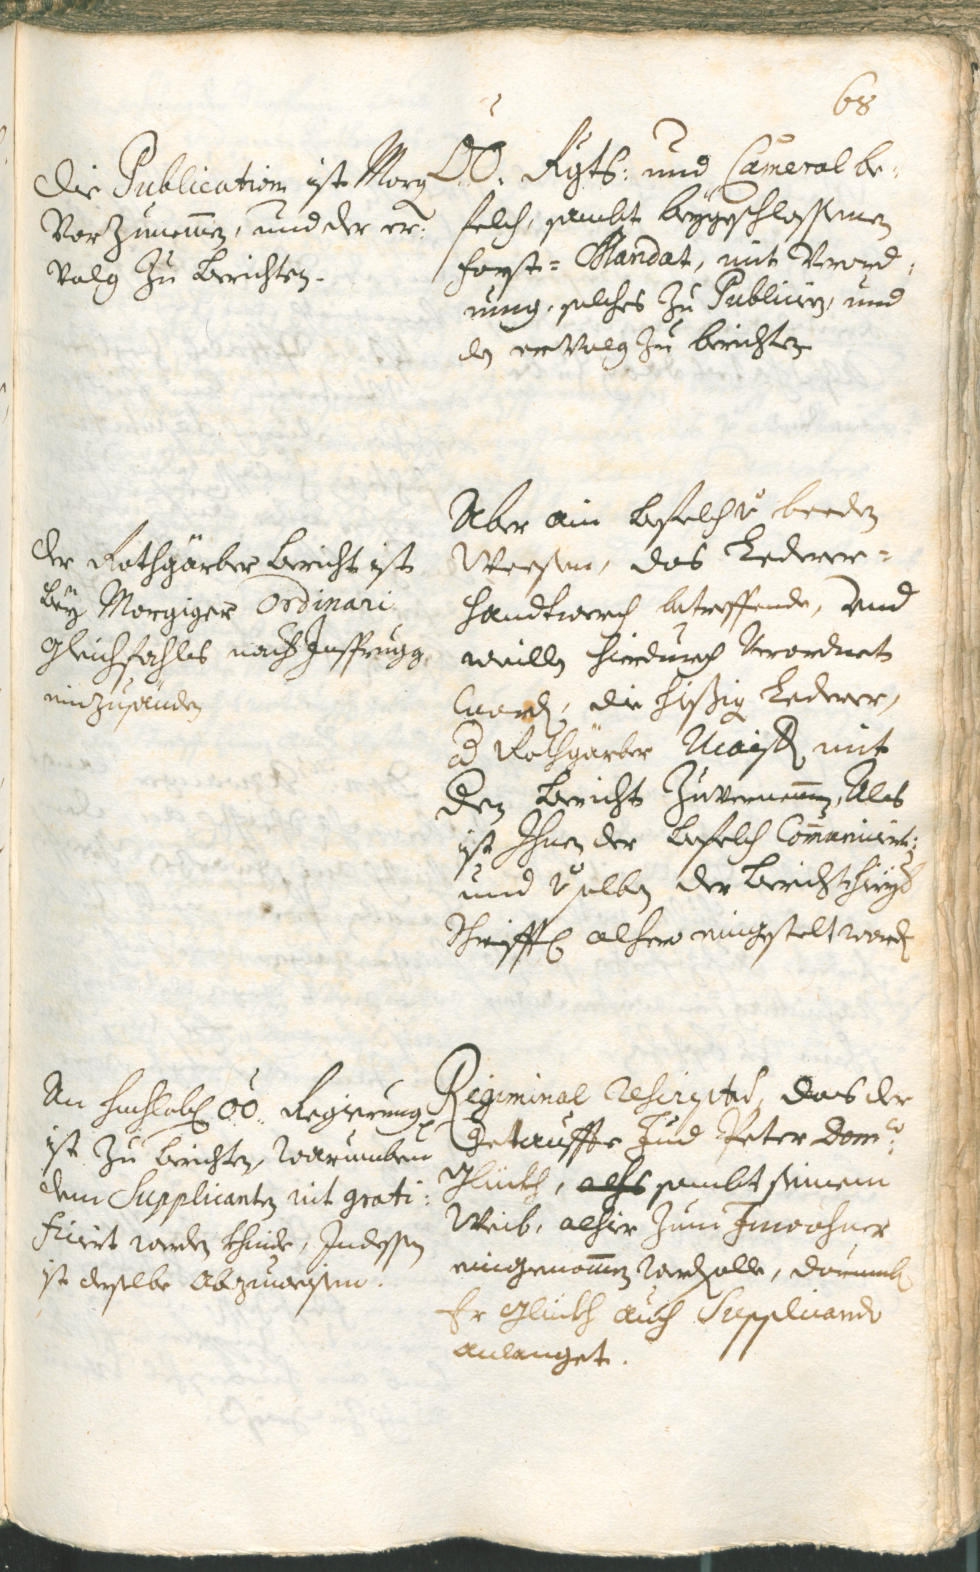 68
Die Publication ist Morg
Vorzunemen, und der er:
volg zu berichten.
ÖÖ. Rgts: und Cameral be:
felch, sambt beygeschlossenen
Forst= Mandat, mit Verord:
nung, solches zu Publiciern, und
den ervolg zu berichten
Der Rothgärber bericht ist
bey Morgiger Ordinari
gleichfahls nacher Insprugg
einzusänden
Aber ain befelch beeden
Weesen, das Lederer=
handtwerch betreffende, und
weillen hierdurch Verordnet
word, die hießige Lederer,
Rothgärber Maister mit
den bericht zuvernemmen, Als
ist Ihnen der befelch Communiciert:
und selben der bericht
alhero eingestelt word
An hochlobl ÖÖ. Regierung
ist zu berichten, warumben
dem Supplicanten nit grati:
ficiert werden khinde, Indessen
ist derselbe abzuweisen.
Regiminal rescriptum, das der
Getauffte Jud Peter Dom:
Glückh, sambt seinem
Weib, alhier zum Inwohner
eingenommen werden solle, darumb
Er Glückh auch Supplicando
anlanget.